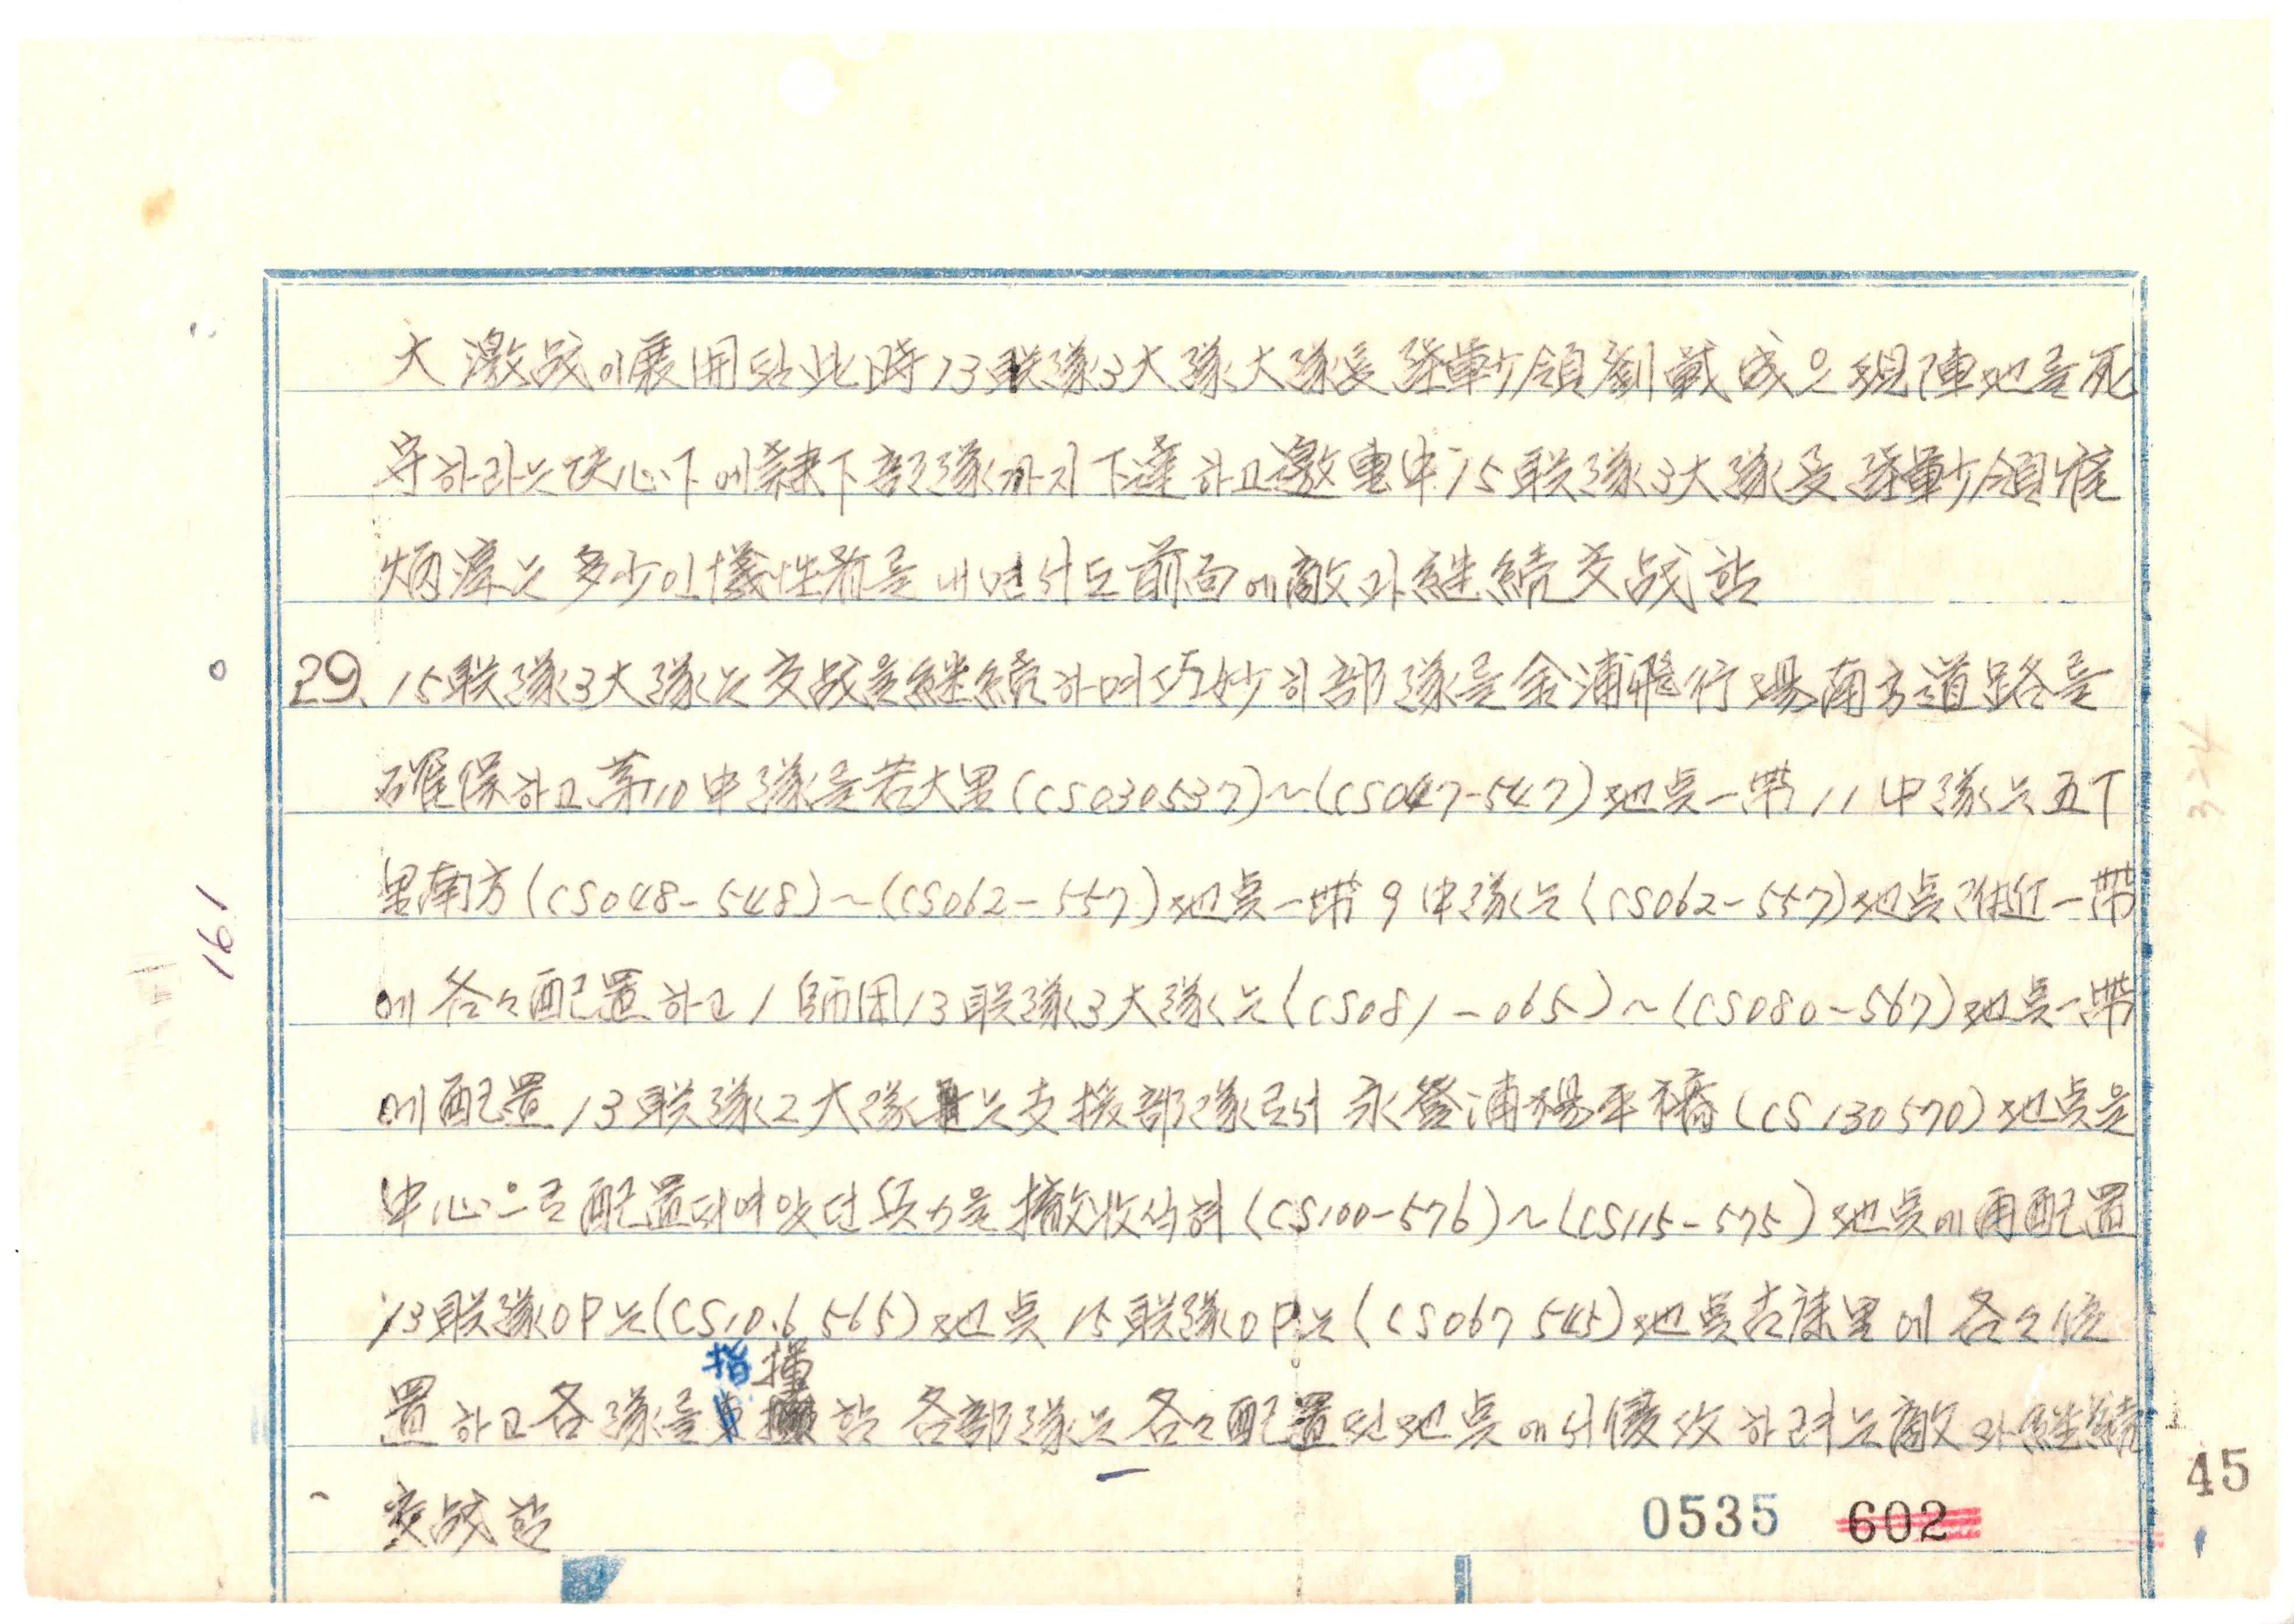 大激战이展開됨 此時 13联隊3大隊大隊長陸軍少領劉載成은 現陣地를死
守하라는決心下에隸下部隊까지下達하고激电中 15联隊3大隊長陸軍少領崔
炳淳는 多少이犧牲者를 내면서도前面에敵과継続交战함
29. 15联隊3大隊는交战을継続하며巧妙히部隊를金浦飛行場南方道路를
確保하고 第10中隊를若大里(CS030537)~(CS047-547)地点一帶 11中隊는五下
里南方(CS048-548)~(CS062-557)地点一帶 9中隊는(CS062-557)地点附近一帶
에 各々配置하고 1師団13联隊3大隊는(CS081-065)~(CS080-567)地点一帶
에配置 13联隊2大隊는支援部隊로서 永登浦楊平橋(CS130570)地点을
中心으로配置되여있던兵力을 撤收식혀(CS100-576)~(CS115-575)地点에再配置
13联隊OP는(CS10.6 565)地点 15联隊OP는(CS067 545)地点古棟里에 各々位
置하고各隊를指揮함 各部隊는 各々配置된地点에서侵攻하려는敵과継続
交战함
0535 602
45
161
324